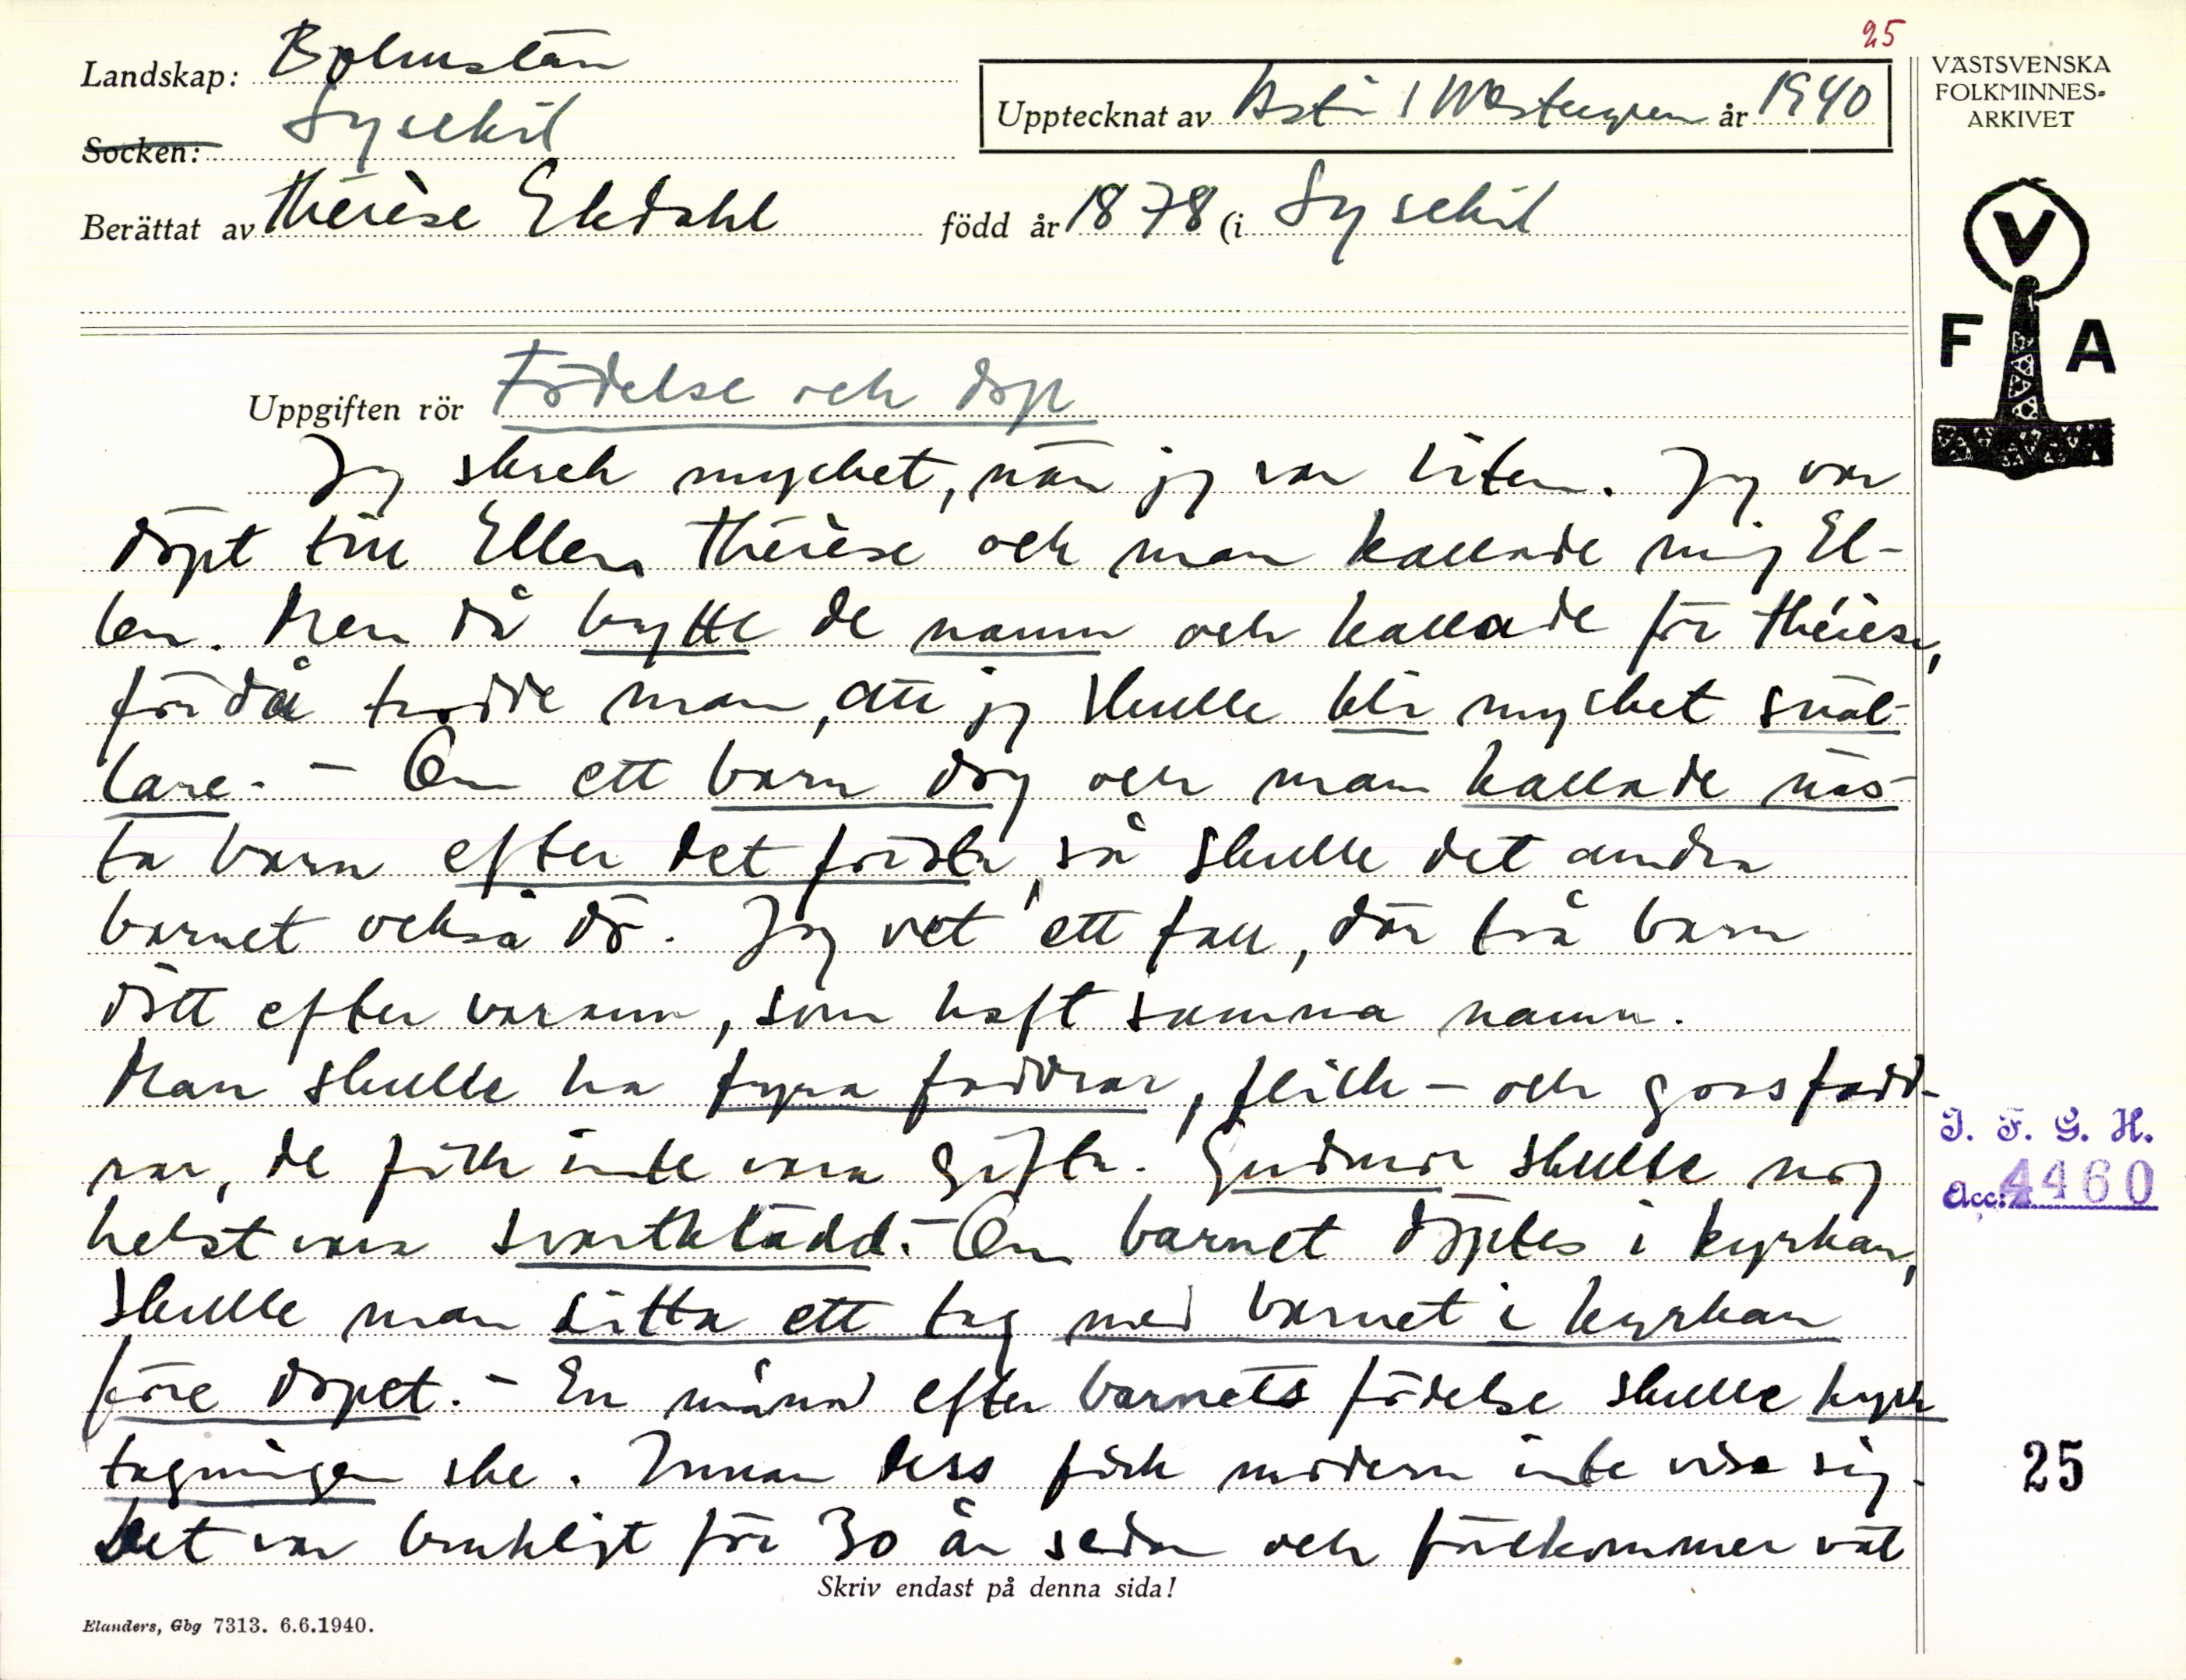 25
Landskap: Bohuslän
VÄSTSVENSKA
FOLKMINNES-
ARKIVET
Upptecknat av Westergren år 1940
Socken: Lysekil
Berättat av Thérèse Ekdahl född år 1878 (i Lysekil
V
F A
Uppgiften rör Födelse och dop
Jag skrek mycket, när jag var liten. Jag var
döpt till Ellen Thérèse och man kallade mig El-
len. Men då bytte de namn och kallade för Thérèse,
för då trodde man, att jag skulle bli mycket snäl-
lare. - Om ett barn dog och man kallade näs-
ta barn efter det första, så skulle det andra
barnet också dö. Jag vet ett fall, där två barn
dött efter varann, som haft samma namn.
Man skulle ha fyra faddrar, flick- och gossfadd-
rar, de fick inte vara gifta. Gudmor skulle nog
helst vara svartklädd. - Om barnet döptes i kyrkan,
skulle man sitta ett tag med barnet i kyrkan
före dopet. - En månad efter barnets födelse skulle kyrk
tagningen ske. Innan dess fick modern inte visa sig.
Det var brukligt för 30 år sedan och förekommer väl
I. F. G. H.
Acc: 4460
25
Skriv endast på denna sida!
Elanders, Gbg 7313. 6.6.1940.